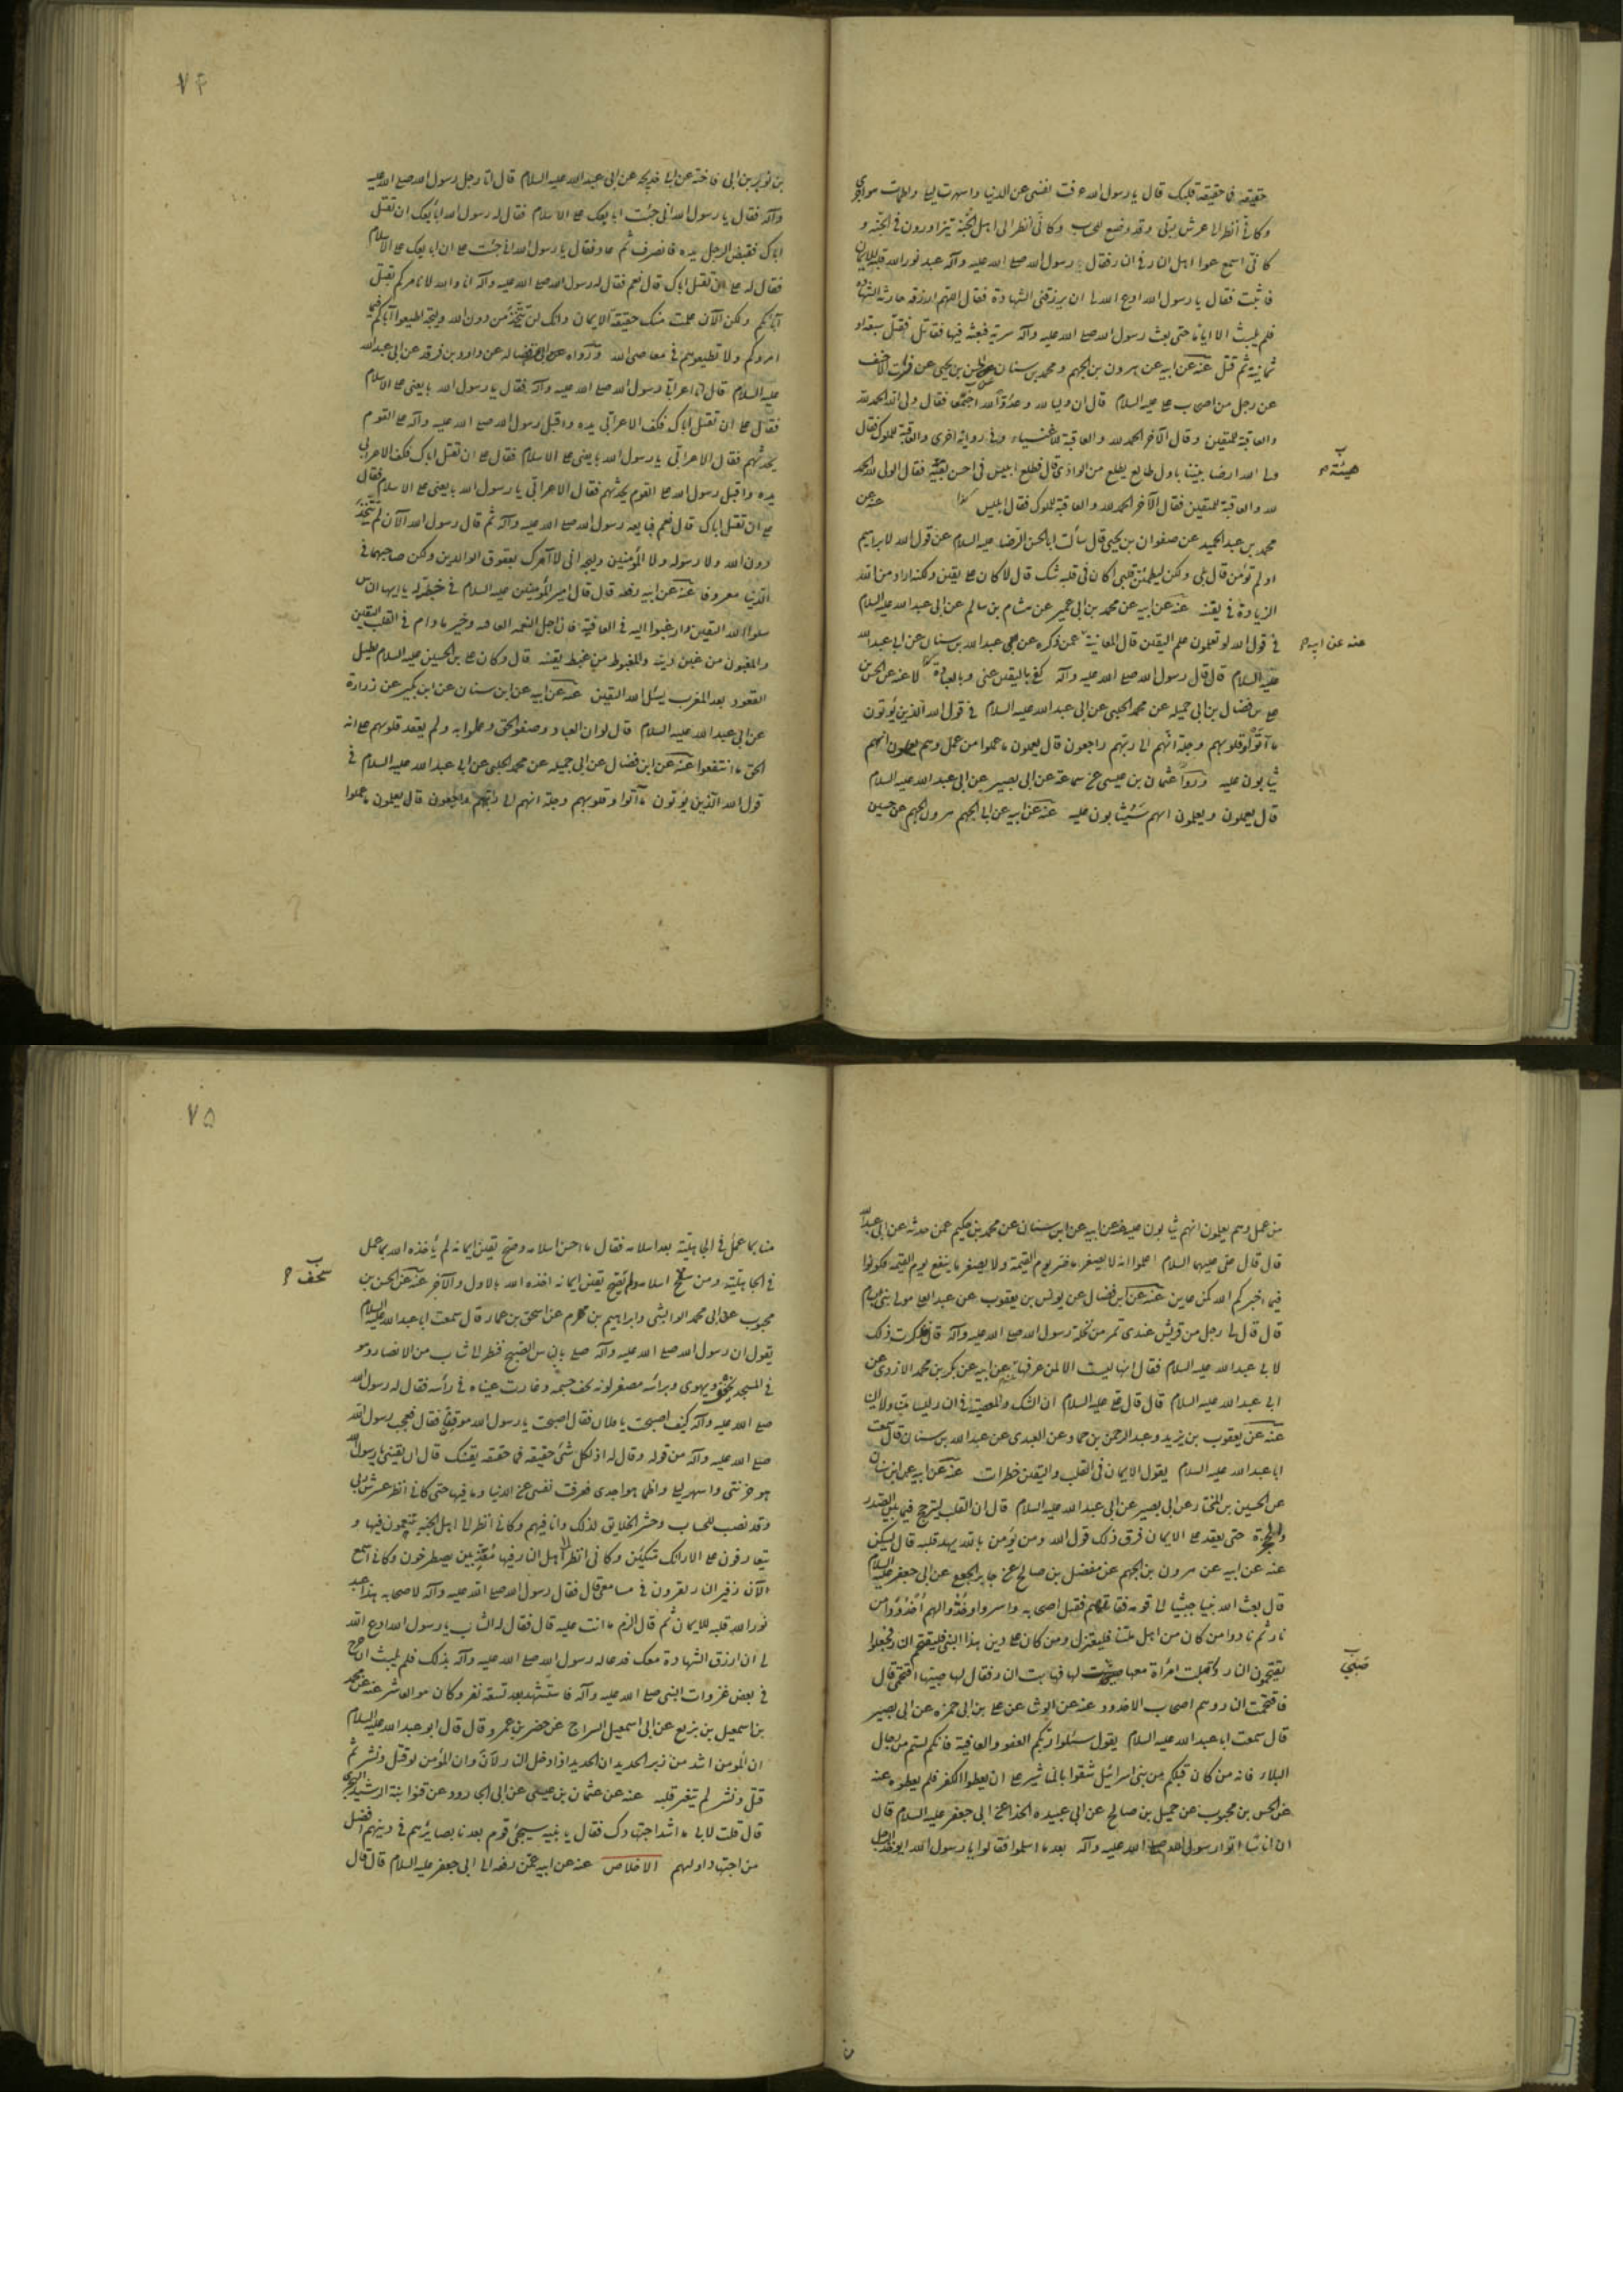 حقيقة فما حقيقة قلبك قال يا رسول الله عرفت نفسى عن الدنيا واسهرت ليلى واظمات هواجرى
وكانى أنظر الى عرش ربى وقد وضع للحساب وكانى أنظر الى اهل الجنة يتزاورون فى الجنة و
كانى اسمع عواء اهل النار فى النار فقال رسول الله صلى الله عليه وآله عبد نور الله قلبه للايمان
فاثبت فقال يا رسول الله ادع الله لى ان يرزقنى الشهادة فقال اللهم ارزق حارثة الشهادة
فلم يلبث الا اياما حتى بعث رسول الله صلى الله عليه وآله سرية فبعثه فيها فقاتل فقتل سبعة او
ثمانية ثم قتل عنه عن ابيه عن هرون بن الجهم ومحمد بن سنان عن الحسن بن يحيى عن فرات الاحنف
عن رجل من اصحاب على عليه السلام قال ان وليا لله وعدوا لله اجتمعا فقال ولى الله الحمد لله
والعاقبة للمتقين وقال الآخر الحمد لله والعاقبة للاغنياء وفى رواية اخرى والعاقبة للملوك فقال
ولى الله ارضا بيننا باول طالع يطلع من الوادى قال فطلع ابليس فى احسن هيئة فقال الولى لله الحمد
هيئة
لله والعاقبة للمتقين فقال الآخر الحمد لله والعاقبة للملوك فقال ابليس كذا عنه عن
محمد بن عبد الحميد عن صفوان بن يحيى قال سألت ابا الحسن الرضا عليه السلام عن قول الله لابراهيم
اولم تؤمن قال بلى ولكن ليطمئن قلبى اكان فى قلبه شك قال لا كان على يقين ولكنه اراد من الله
الزيادة فى يقينه عنه عن ابيه عن محمد بن ابى عمير عن هشام بن سالم عن ابى عبد الله عليه السلام
فى قول الله لو تعلمون علم اليقين قال المعاينة عمن ذكره عن محمد عبد الله بن سنان عن ابى عبد الله
عنه عن ابيه
عليه السلام قال قال رسول الله صلى الله عليه وآله كفى باليقين غنى وبالعبادة عنه عن الحسن
على بن فضال بن ابى جميلة عن محمد الحلبى عن ابى عبد الله عليه السلام فى قول الله الذين يؤتون
ما آتوا وقلوبهم وجلة انهم الى ربهم راجعون قال يعلمون ما عملوا من عمل وهم يعلمون انهم
يثابون عليه وروا عثمان بن عيسى عن سماعة عن ابى بصير عن ابى عبد الله عليه السلام
قال يعملون ويعلمون انهم سيثابون عليه عنه عن ابيه عن ابى الجهم هرون الجهم عن حسين
٧٤
بن ثوير بن ابى فاخته عن ابى خديجة عن ابى عبد الله عليه السلام قال اتا رجل رسول الله صلى الله عليه
وآله فقال يا رسول الله انى جئت ابايعك على الاسلام فقال له رسول الله ابايعك ان تقتل
اباك فقبض الرجل يده فانصرف ثم عاد فقال يا رسول الله انى جئت على ان ابايعك على الاسلام
فقال له على ان تقتل اباك قال نعم فقال له رسول الله صلى الله عليه وآله انا والله لا نامركم بقتل
آبائكم ولكن الآن علمت منك حقيقة الايمان وانك لن تتخذ من دون الله وليجة اطيعوا آباءكم فيما
امروكم ولا تطيعوهم فى معاصى الله ورواه عن ابن فضال عن داود بن فرقد عن ابى عبد الله
عليه السلام قال اتى اعرابى رسول الله صلى الله عليه وآله فقال يا رسول الله بايعنى على الاسلام
فقال على ان تقتل اباك فكف الاعرابى يده واقبل رسول الله صلى الله عليه وآله على القوم
يحدثهم فقال الاعرابى يا رسول الله بايعنى على الاسلام فقال على ان تقتل اباك فكف الاعرابى
يده واقبل رسول الله على القوم يحدثهم فقال الاعرابى يا رسول الله بايعنى على الاسلام فقال
على ان تقتل اباك قال نعم فبايعه رسول الله صلى الله عليه وآله ثم قال رسول الله الآن لم تتخذ
دون الله ولا رسوله ولا المؤمنين وليجة انى لا آمرك بعقوق الوالدين ولكن صاحبهما فى
الدنيا معروفا عنه عن ابيه رفعه قال قال امير المؤمنين عليه السلام فى خطبة له يا ايها الناس
سلوا الله اليقين وارغبوا اليه فى العافية فان اجل النعمة العافية وخير ما دام فى القلب اليقين
والمغبون من غبن دينه والمغبوط من غبط يقينه قال وكان على بن الحسين عليه السلام يطيل
القعود بعد المغرب يسئل الله اليقين عنه عن ابيه عن ابن سنان عن ابن بكير عن زرارة
عن ابى عبد الله عليه السلام قال لو ان العباد وصفوا الحق وعملوا به ولم يعقد قلوبهم على انه
الحق ما انتفعوا عنه عن ابن فضال عن ابى جميلة عن محمد الحلبى عن ابى عبد الله عليه السلام فى
قول الله الذين يؤتون ما آتوا وقلوبهم وجلة انهم الى ربهم راجعون قال يعلمون ما عملوا
من عمل وهم يعلمون انهم يثابون عليه عنه عن ابيه عن ابن سنان عن محمد بن حكيم عمن حدثه عن ابى عبد الله
قال قال على عليه السلام اعلموا انه لا يصغر ما ضر يوم القيمة ولا يصغر ما ينفع يوم القيمة فكونوا
فيما اخبركم الله كمن عاين عنه عن ابن فضال عن يونس بن يعقوب عن عبد الاعلى مولى بنى سام
قال قال لى رجل من قريش عندى تمر من نخلة رسول الله صلى الله عليه وآله قال فذكرت ذلك
لابى عبد الله عليه السلام فقال انها ليست الا لمن عرفها عنه عن ابيه عن بكر بن محمد الازدى عن
ابى عبد الله عليه السلام قال قال على عليه السلام ان الشك والمعصية فى النار ليسا منا ولا الينا
عنه عن يعقوب بن يزيد وعبد الرحمن بن حماد عن العبدى عن عبد الله بن سنان قال سمعت
ابا عبد الله عليه السلام يقول الايمان فى القلب واليقين خطرات عنه عن ابيه عن ابن سنان
عن الحسين بن المختار عن ابى بصير عن ابى عبد الله عليه السلام قال ان القلب ليترجج فيما بين الصدر
والحنجرة حتى يعقد على الايمان فرق ذلك قول الله ومن يؤمن بالله يهد قلبه قال ليسكن
عنه عن ابيه عن هرون بن الجهم عن مفضل بن صالح عن جابر الجعفى عن ابى جعفر عليه السلام
قال بعث الله نبيا حبشيا الى قومه فقاتلهم فقتل اصحابه واسروا وخدوا لهم اخدودا من
نار ثم نادوا من كان من اهل ملتنا فليعتزل ومن كان على دين هذا النبى فليقتحم النار فجعلوا
يقتحمون النار واقبلت امرأة معها صبى لها فهابت النار فقال لها صبيها اقتحمى قال
صبىّ
فاقتحمت النار وهم اصحاب الاخدود عنه عن الوشا عن على بن ابى حمزه عن ابى بصير
قال سمعت ابا عبد الله عليه السلام يقول سئلوا ربكم العفو والعافية فانكم لستم من رجال
البلاء فانه من كان قبلكم من بنى اسرائيل شقوا بالمناشير على ان يعطوا الكفر فلم يعطوه عنه
عن الحسن بن محبوب عن جميل بن صالح عن ابى عبيده الحذاء عن ابى جعفر عليه السلام قال
ان اناسا اتوا رسول الله صلى الله عليه وآله بعد ما اسلموا فقالوا يا رسول الله ايؤخذ الرجل
٧٥
منا بما عمل فى الجاهلية بعد اسلامه فقال من احسن اسلامه وصح يقين ايمانه لم يأخذه الله بما عمل
فى الجاهلية ومن سخف اسلامه ولم يصح يقين ايمانه اخذه الله بالاول والآخر عنه عن الحسن بن
سخف
محبوب عن ابى محمد الوابشى وابراهيم بن مهزم عن اسحق بن عمار قال سمعت ابا عبد الله عليه السلام
يقول ان رسول الله صلى الله عليه وآله صلى بالناس الصبح فنظر الى شاب من الانصار وهو
فى المسجد يخفق ويهوى برأسه مصفر لونه نحف جسمه وغارت عيناه فى رأسه فقال له رسول الله
صلى الله عليه وآله كيف اصبحت يا فلان فقال اصبحت يا رسول الله موقنا فقال فعجب رسول الله
صلى الله عليه وآله من قوله وقال له ان لكل شئ حقيقة فما حقيقة يقينك قال ان يقينى يا رسول الله
هو احزننى واسهر ليلى واظما هواجرى فعرفت نفسى عن الدنيا وما فيها حتى كانى انظر عرش ربى
وقد نصب للحساب وحشر الخلايق لذلك وانا فيهم وكانى انظر الى اهل الجنة يتنعمون فيها و
يتعارفون على الارائك متكئين وكانى انظر الى اهل النار فيها معذبين يصطرخون وكانى اسمع
الآن زفير النار يعزفون فى مسامعى قال فقال رسول الله صلى الله عليه وآله لاصحابه هذا عبد
نور الله قلبه للايمان ثم قال الزم ما انت عليه قال فقال له الشاب يا رسول الله ادع الله
لى ان ارزق الشهادة معك فدعا له رسول الله صلى الله عليه وآله بذلك فلم يلبث ان خرج
فى بعض غزوات النبى صلى الله عليه وآله فاستشهد بعد تسعة نفر وكان هو العاشر عنه عن محمد
بن اسمعيل بن بزيع عن ابى اسمعيل السراج عن خضر بن عمرو قال قال ابو عبد الله عليه السلام
ان المومن اشد من زبر الحديد ان الحديد اذا دخل النار لان وان المؤمن لو قتل ونشر ثم
قتل ونشر لم يتغير قلبه عنه عن عثمان بن عيسى عن ابى الجارود عن قنوا ابنة الرشيد الهجرى
قال قلت لابى ما اشد اجتهادك فقال يا بنية سيجئ قوم بعدنا بصايرهم فى دينهم افضل
من اجتهاد اوليهم الاخلاص عنه عن ابيه عمن رفعه الى ابى جعفر عليه السلام قال قال